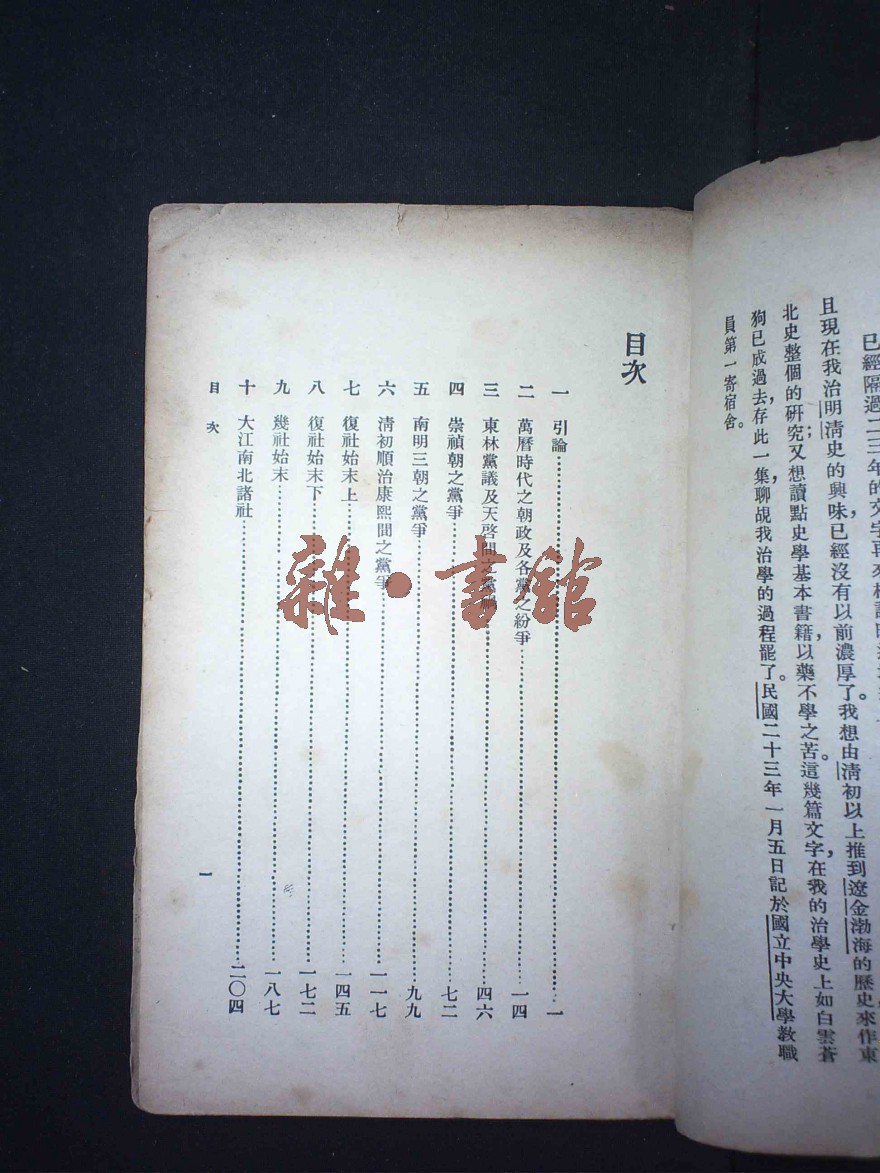 已經隔過二三年的文字再來
且現在我治明清史的興味，已經沒有以前濃厚了。我想由清初以上推到遼金渤海的歷史來作東
北史整個的研究；又想讀點史學基本書籍，以藥不學之苦。這幾篇文字，在我的治學史上如白雲蒼
狗已成過去，存此一集，聊覘我治學的過程罷了。民國二十三年一月五日記於國立中央大學教職
員第一寄宿舍。
目次
一 引論 一
二 萬曆時代之朝政及各黨之紛爭 一四
三 東林黨議及天啓間之黨禍 四六
四 崇禎朝之黨爭 七二
五 南明三朝之黨爭 九九
六 清初順治康熙間之黨爭 一一七
七 復社始末上 一四五
八 復社始末下 一七二
九 幾社始末 一八七
十 大江南北諸社 二〇四
目次
一
雜·書館